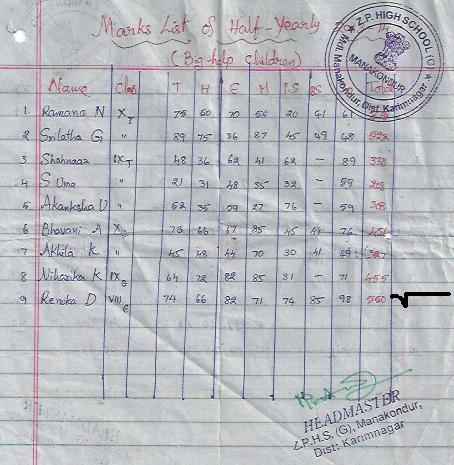 Marks List of Half-Yearly
(Big-help Children)
Z.P. HIGH SCHOOL (G)
MANAKONDUR
Mdl: Manakondur, Dist: Karimnagar
Name Class T H E M P.S B.S Total
1 Ramana N X T 75 50 70 58 20 41 61
2 Srilatha G " 89 75 86 87 45 49 68
3 Shahnaaz IX T 48 36 62 41 62 - 89 338
4 S Uma " 21 31 48 35 32 - 59
5 Akanksha D " 52 35 59 27 76 - 59 308
6 Bhavani A X E 73 66 67 85 45 41 76 451
7 Akhila K " 45 48 44 70 30 41 49 327
8 Niharika K IX E 64 72 82 85 81 - 71 455
9 Renuka D VIII E 74 66 82 71 74 85 98 550
HEADMASTER
Z.P.H.S. (G), Manakondur,
Dist: Karimnagar